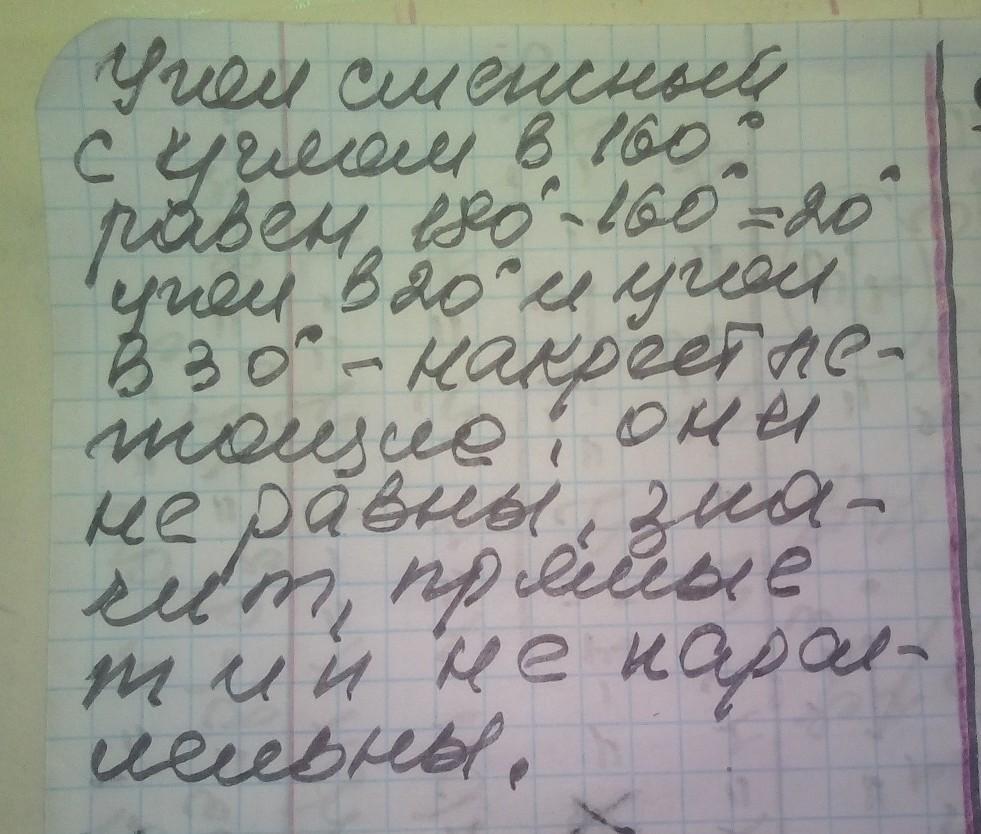 Угол смежный
с углом в 160°
равен 180°-160°=20°
угол в 20° и угол
в 30° - накрест ле-
жащие; они
не равны, зна-
чит, прямые
m и n не парал-
лельны.